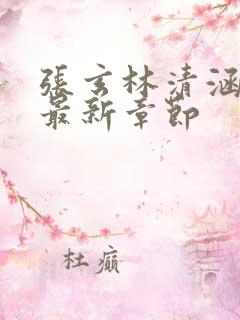 張玄林清涵
最新章節
杜癲